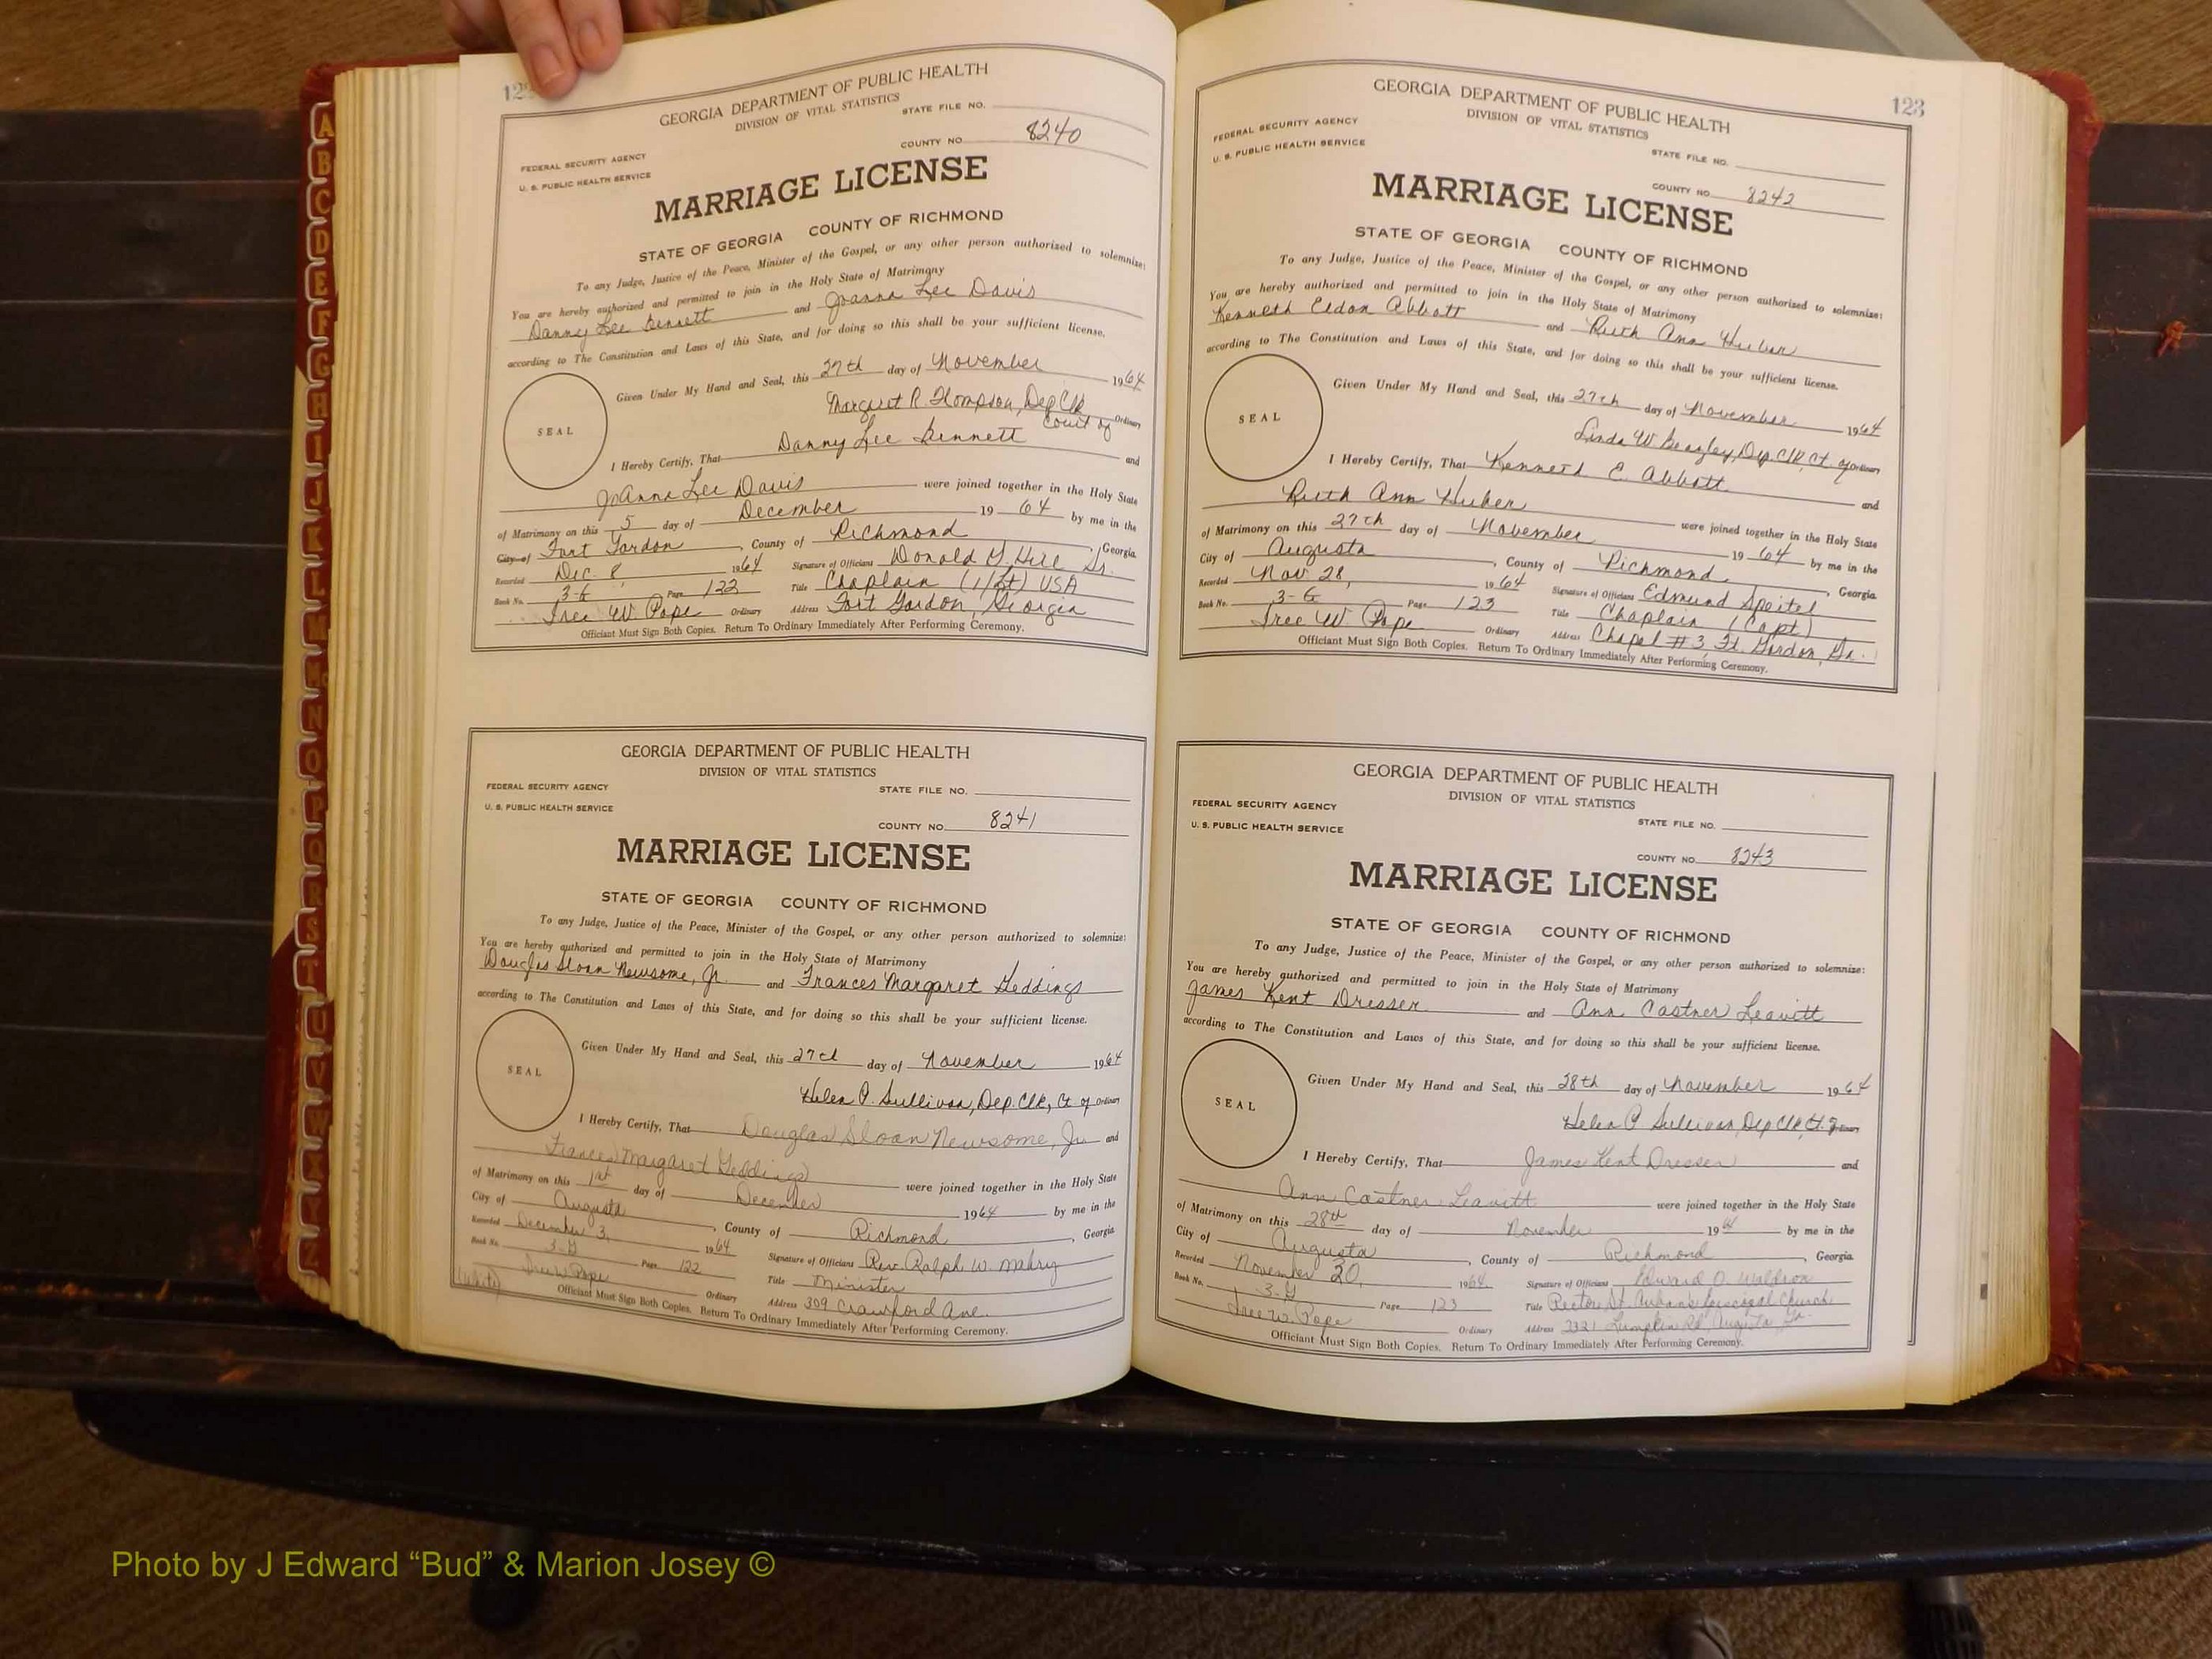 122
GEORGIA DEPARTMENT OF PUBLIC HEALTH
DIVISION OF VITAL STATISTICS
STATE FILE NO.
COUNTY NO. 8240
FEDERAL SECURITY AGENCY
U. S. PUBLIC HEALTH SERVICE
MARRIAGE LICENSE
STATE OF GEORGIA COUNTY OF RICHMOND
To any Judge, Justice of the Peace, Minister of the Gospel, or any other person authorized to solemnize:
You are hereby authorized and permitted to join in the Holy State of Matrimony
Danny Lee Bennett and Joanna Lee Davis
according to The Constitution and Laws of this State, and for doing so this shall be your sufficient license.
Given Under My Hand and Seal, this 27th day of November 1964
SEAL
Margaret R. Thompson, Dep Clk Court of Ordinary
I Hereby Certify, That Danny Lee Bennett and
JoAnna Lee Davis were joined together in the Holy State
of Matrimony on this 5 day of December 19 64 by me in the
City of Fort Gordon, County of Richmond, Georgia.
Recorded Dec. 8, 1964 Signature of Officiant Donald G. Hill Sr.
Book No. 3-G Page 122 Title Chaplain (1/Lt) USA
W. Pope Ordinary Address Fort Gordon, Georgia
Officiant Must Sign Both Copies. Return To Ordinary Immediately After Performing Ceremony.
GEORGIA DEPARTMENT OF PUBLIC HEALTH
DIVISION OF VITAL STATISTICS
FEDERAL SECURITY AGENCY
STATE FILE NO.
U. S. PUBLIC HEALTH SERVICE
COUNTY NO. 8241
MARRIAGE LICENSE
STATE OF GEORGIA COUNTY OF RICHMOND
To any Judge, Justice of the Peace, Minister of the Gospel, or any other person authorized to solemnize:
You are hereby authorized and permitted to join in the Holy State of Matrimony
Douglas Sloan Newsome, Jr. and Frances Margaret Geddings
according to The Constitution and Laws of this State, and for doing so this shall be your sufficient license.
Given Under My Hand and Seal, this 27th day of November 1964
SEAL
Helen P. Sullivan, Dep. Clk, Ct of Ordinary
I Hereby Certify, That Douglas Sloan Newsome, Jr. and
Frances Margaret Geddings were joined together in the Holy State
of Matrimony on this 1st day of December 1964 by me in the
City of Augusta, County of Richmond, Georgia
Recorded December 3, 1964 Signature of Officiant Rev. Ralph W. Mabry
Book No. 3-G Page 122 Title Minister
W. Pope Ordinary Address 309 Crawford Ave.
(white)
Officiant Must Sign Both Copies. Return To Ordinary Immediately After Performing Ceremony.
123
GEORGIA DEPARTMENT OF PUBLIC HEALTH
DIVISION OF VITAL STATISTICS
FEDERAL SECURITY AGENCY
U. S. PUBLIC HEALTH SERVICE
STATE FILE NO.
COUNTY NO. 8242
MARRIAGE LICENSE
STATE OF GEORGIA COUNTY OF RICHMOND
To any Judge, Justice of the Peace, Minister of the Gospel, or any other person authorized to solemnize:
You are hereby authorized and permitted to join in the Holy State of Matrimony
Kenneth Eldon Abbott and Ruth Ann Huber
according to The Constitution and Laws of this State, and for doing so this shall be your sufficient license.
Given Under My Hand and Seal, this 27th day of November 1964
SEAL
Linda W. Beazley, Dep. Clk, Ct. of Ordinary
I Hereby Certify, That Kenneth E. Abbott and
Ruth Ann Huber were joined together in the Holy State
of Matrimony on this 27th day of November 19 64 by me in the
City of Augusta, County of Richmond, Georgia
Recorded Nov. 28, 1964 Signature of Officiant Edmund Speitel
Book No. 3-G Page 123 Title Chaplain (Capt)
W. Pope Ordinary Address Chapel #3, Ft. Gordon, Ga.
Officiant Must Sign Both Copies. Return To Ordinary Immediately After Performing Ceremony.
GEORGIA DEPARTMENT OF PUBLIC HEALTH
DIVISION OF VITAL STATISTICS
FEDERAL SECURITY AGENCY
U. S. PUBLIC HEALTH SERVICE
STATE FILE NO.
COUNTY NO. 8243
MARRIAGE LICENSE
STATE OF GEORGIA COUNTY OF RICHMOND
To any Judge, Justice of the Peace, Minister of the Gospel, or any other person authorized to solemnize:
You are hereby authorized and permitted to join in the Holy State of Matrimony
James Kent Dresser and Ann Castner Leavitt
according to The Constitution and Laws of this State, and for doing so this shall be your sufficient license.
Given Under My Hand and Seal, this 28th day of November 1964
SEAL
Helen P Sullivan, Dep Clk, Ct. of Ordinary
I Hereby Certify, That James Kent Dresser and
Ann Castner Leavitt were joined together in the Holy State
of Matrimony on this 28th day of November 1964 by me in the
City of Augusta, County of Richmond, Georgia
Recorded November 30, 1964 Signature of Officiant Edward O. Waldron
Book No. 3-G Page 123 Title Rector St. Alban's Episcopal Church
W. Pope Ordinary Address 3321 Lumpkin Rd, Augusta, Ga.
Officiant Must Sign Both Copies. Return To Ordinary Immediately After Performing Ceremony.
A
B
C
D
E
F
G
H
I
J
K
L
M
Mc
N
O
P
Q
R
S
T
U
V
W
X
Y
Z
Photo by J Edward “Bud” & Marion Josey ©